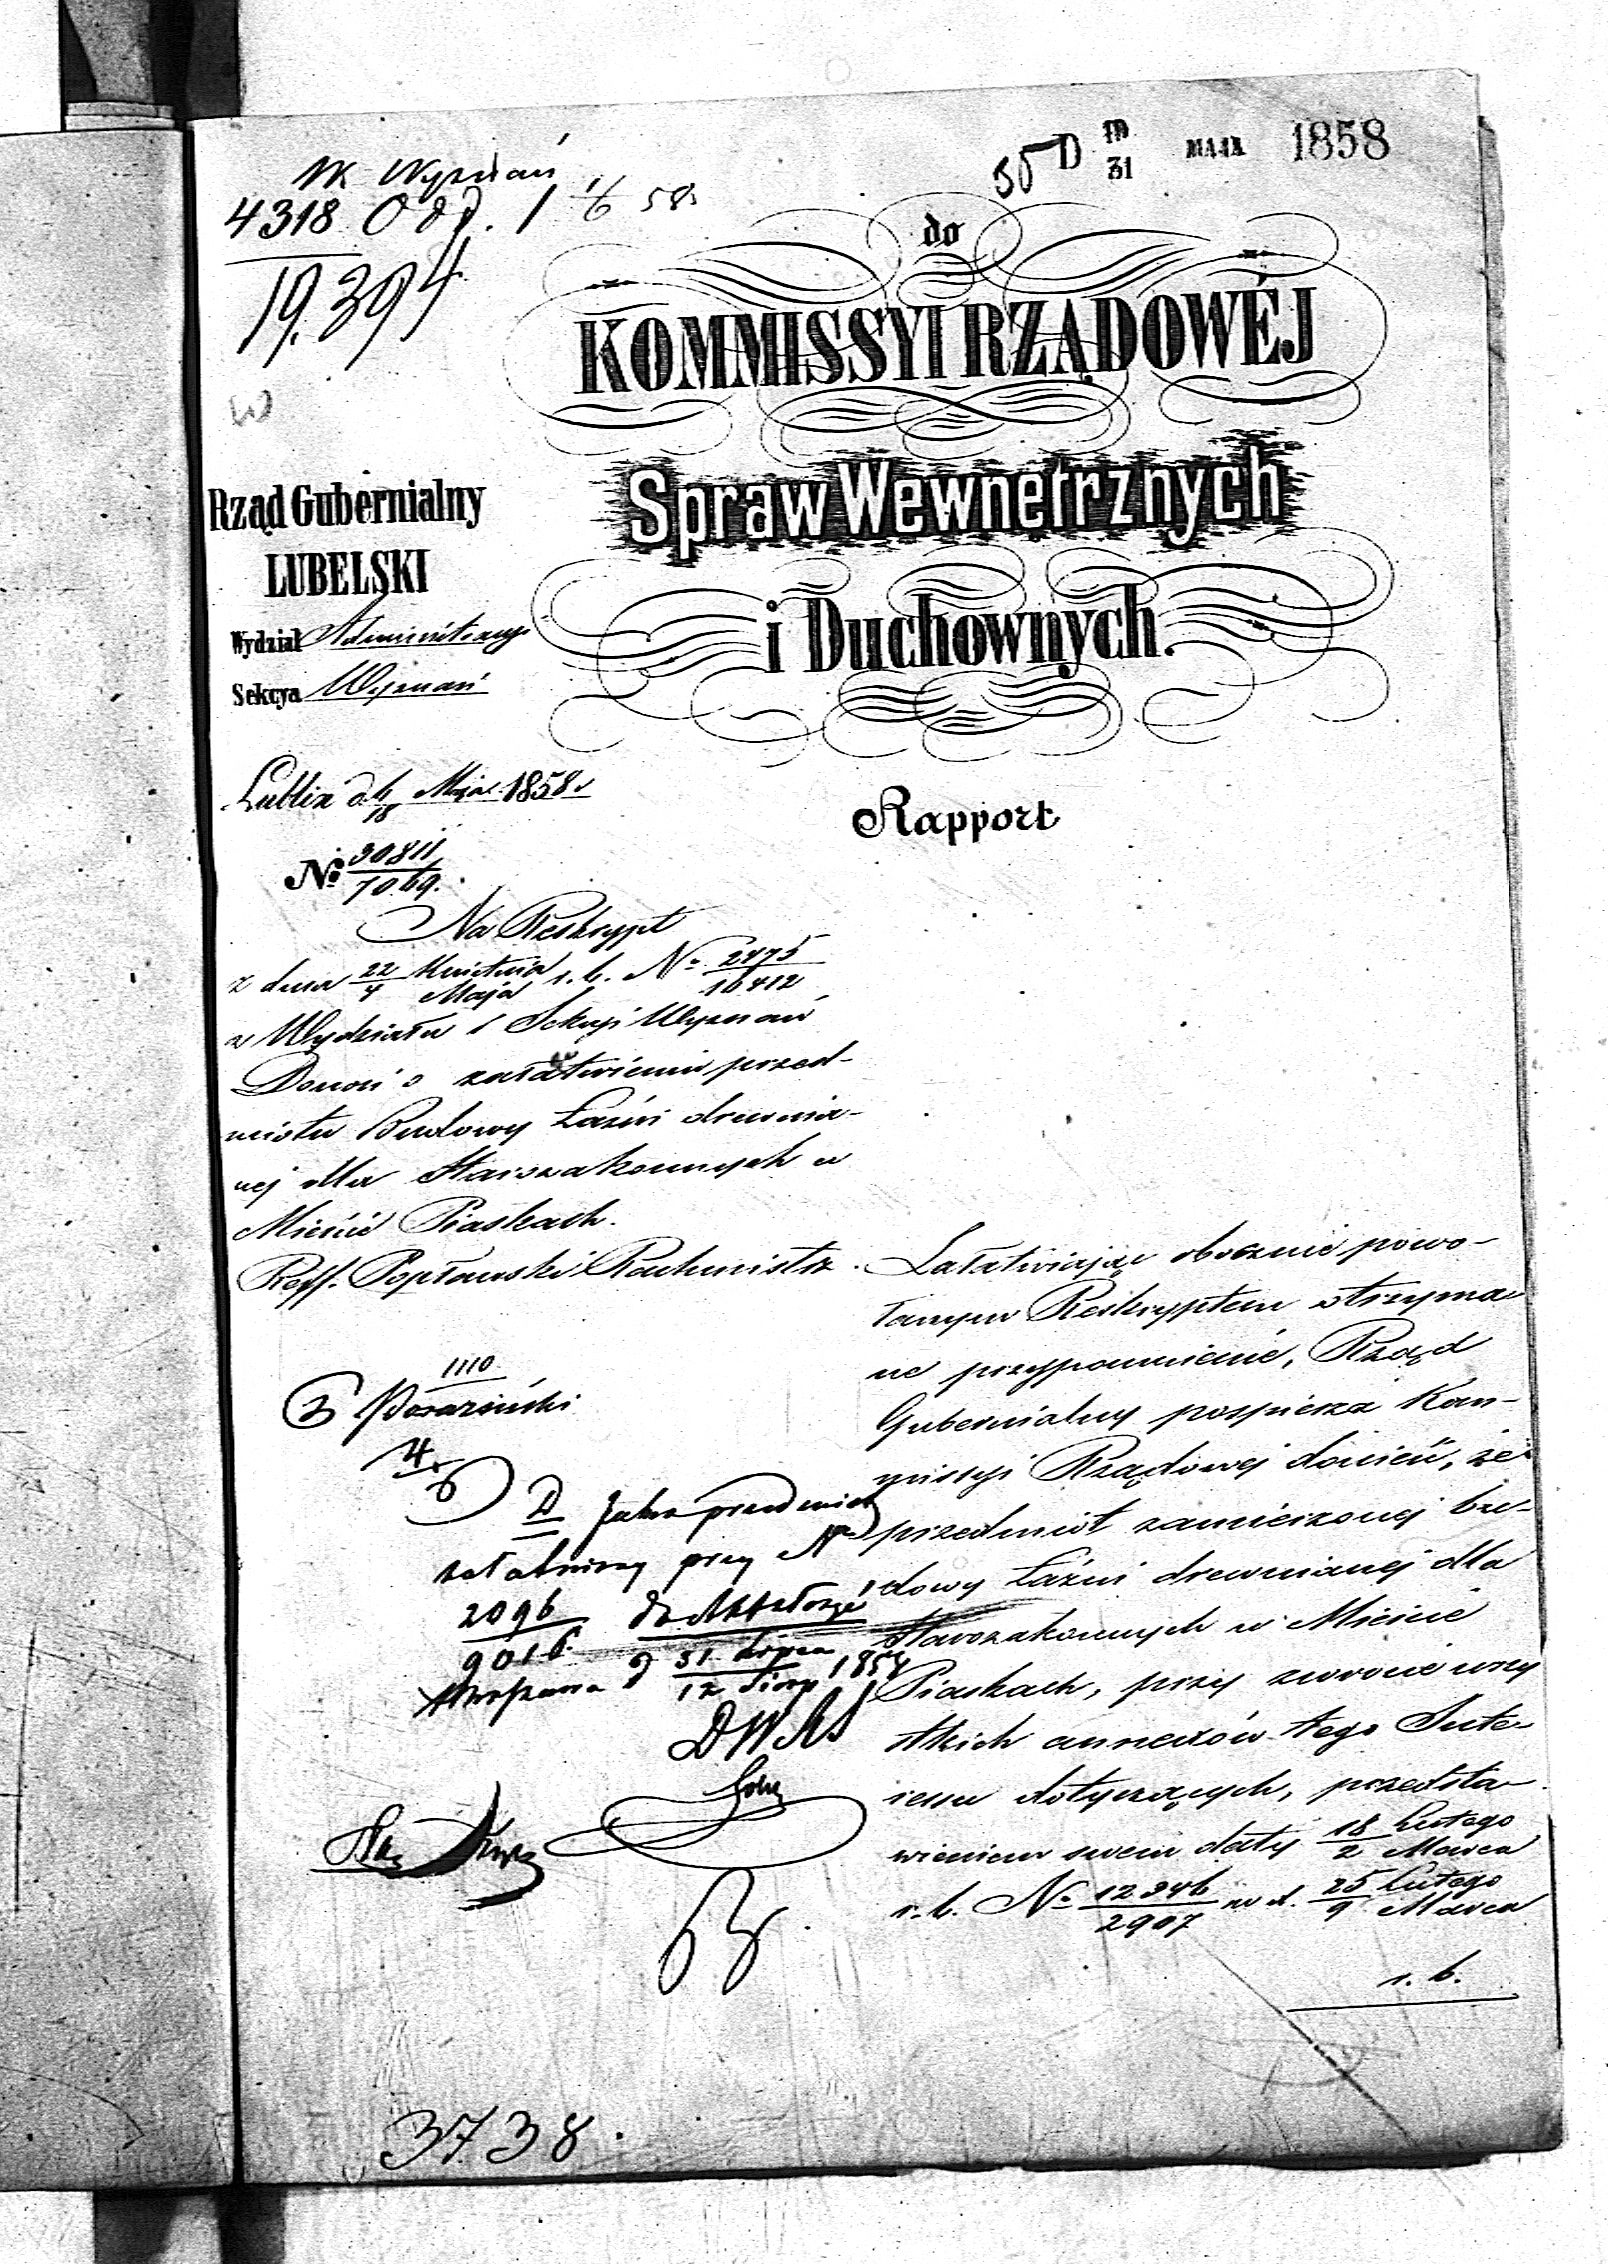 19/31 MAJA 1858
W Wyznań
4318 Odd. 1 1/6 58
19.394
do
KOMMISSYI RZĄDOWÉJ
Spraw Wewnetrznych
i Duchownych.
Rząd Gubernialny
LUBELSKI
Wydział Administracyj
Sekcya Wyznań
Lublin d. 6/18 Maja 1858
Rapport
No 30811/7069.
Na Reskrypt
z dnia 22/4 Kwietnia/Maja r. b. No 2475/10412
z Wydziału i Sekcyi Wyznań
Donosi o załatwieniu przed-
miotu Budowy Łaźni drewnia-
nej dla Starozakonnych w
Mieście Piaskach.
Reff. Popławski Rachmistrz.
Załatwiając obocznie powo-
łanym Reskryptem otrzyma
ne przypomnienie, Rząd
Gubernialny pospiesza Kom-
missyi Rządowej donieść, że
przedmiot zamierzonej bu-
dowy Łaźni drewnianej dla
Starozakonnych w Mieście
Piaskach, przy zwrocie wszy
stkich annexów tego Inte-
ressu dotyczących, przedsta-
wieniem swem daty 18/2 Lutego/Marca
r. b. No 12346/2907 w d. 25/9 Lutego/Marca
r. b.
1110
4/6
D Jako przedmiot
załatwiony przy No
2096/9016
31 Lipca/12 Sierp 1858
3738.